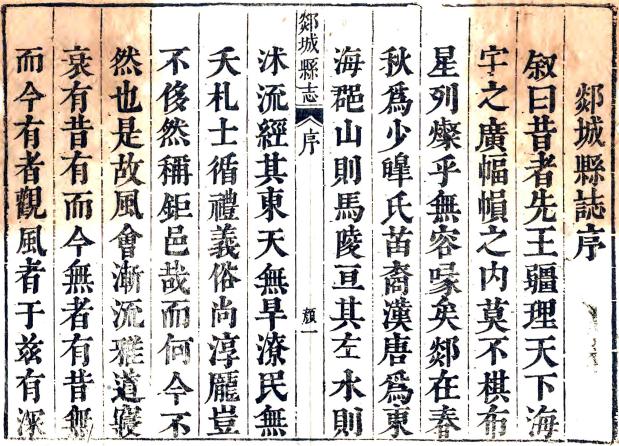 郯城縣誌序
叙曰昔者先王疆理天下海
宇之廣幅幀之内莫不棋布
星列燦乎無容喙矣郯在春
秋爲少皡氏苗裔漢唐爲東
海郡山則馬陵亘其左水則
郯城縣志
序
顔一
沭流經其東天無旱潦民無
夭札士循禮義俗尚淳龐豈
不侈然稱鉅邑哉而何今不
然也是故風會漸流雅道寖
衰有昔有而今無者有昔無
而今有者觀風者于兹有深